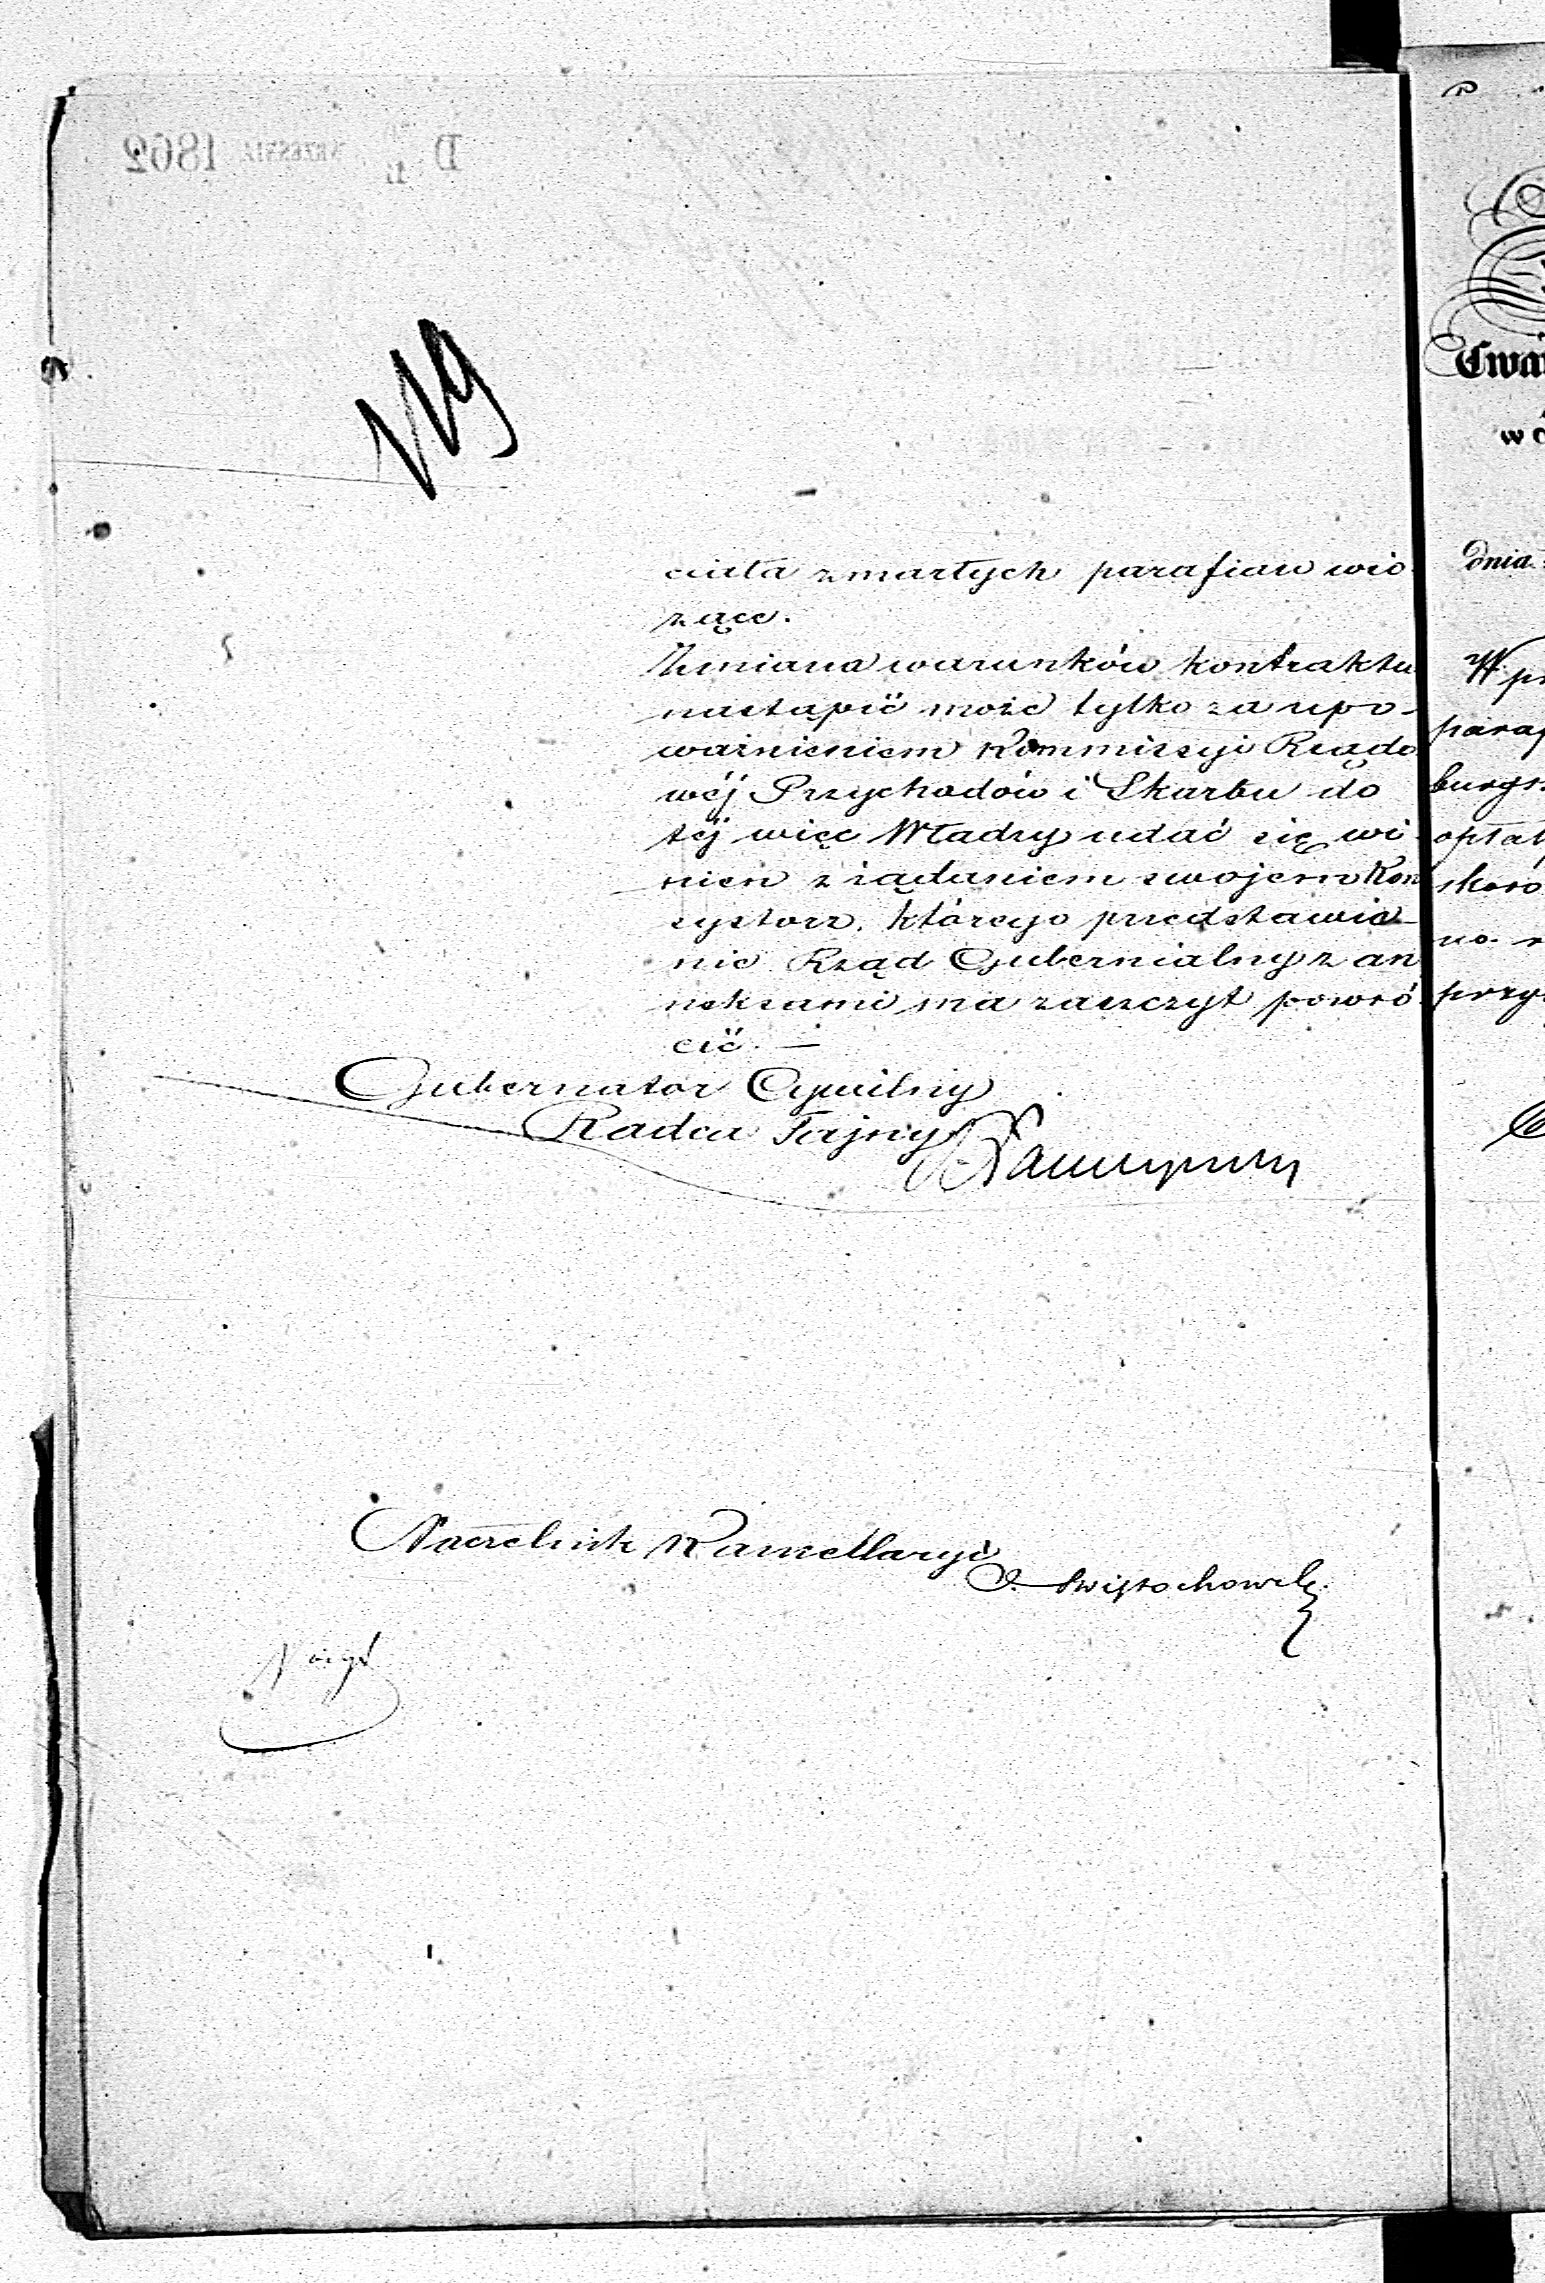 119
ciała zmarłych parafian wio-
zące.
Zmiana warunków kontraktu
nastąpić może tylko za upo-
ważnieniem Kommissyi Rządo
wéj Przychodów i Skarbu do
téj więc Władzy udać się wi-
nien z żądaniem swojem Kon
systorz, którego przedstawie-
nie Rząd Gubernialny z an
neksami ma zaszczyt powró
cić. —
Gubernator Cywilny
Radca Tajny
Naczelnik Kancellaryi
Świętochowski
Dnia
W
Cwa
w